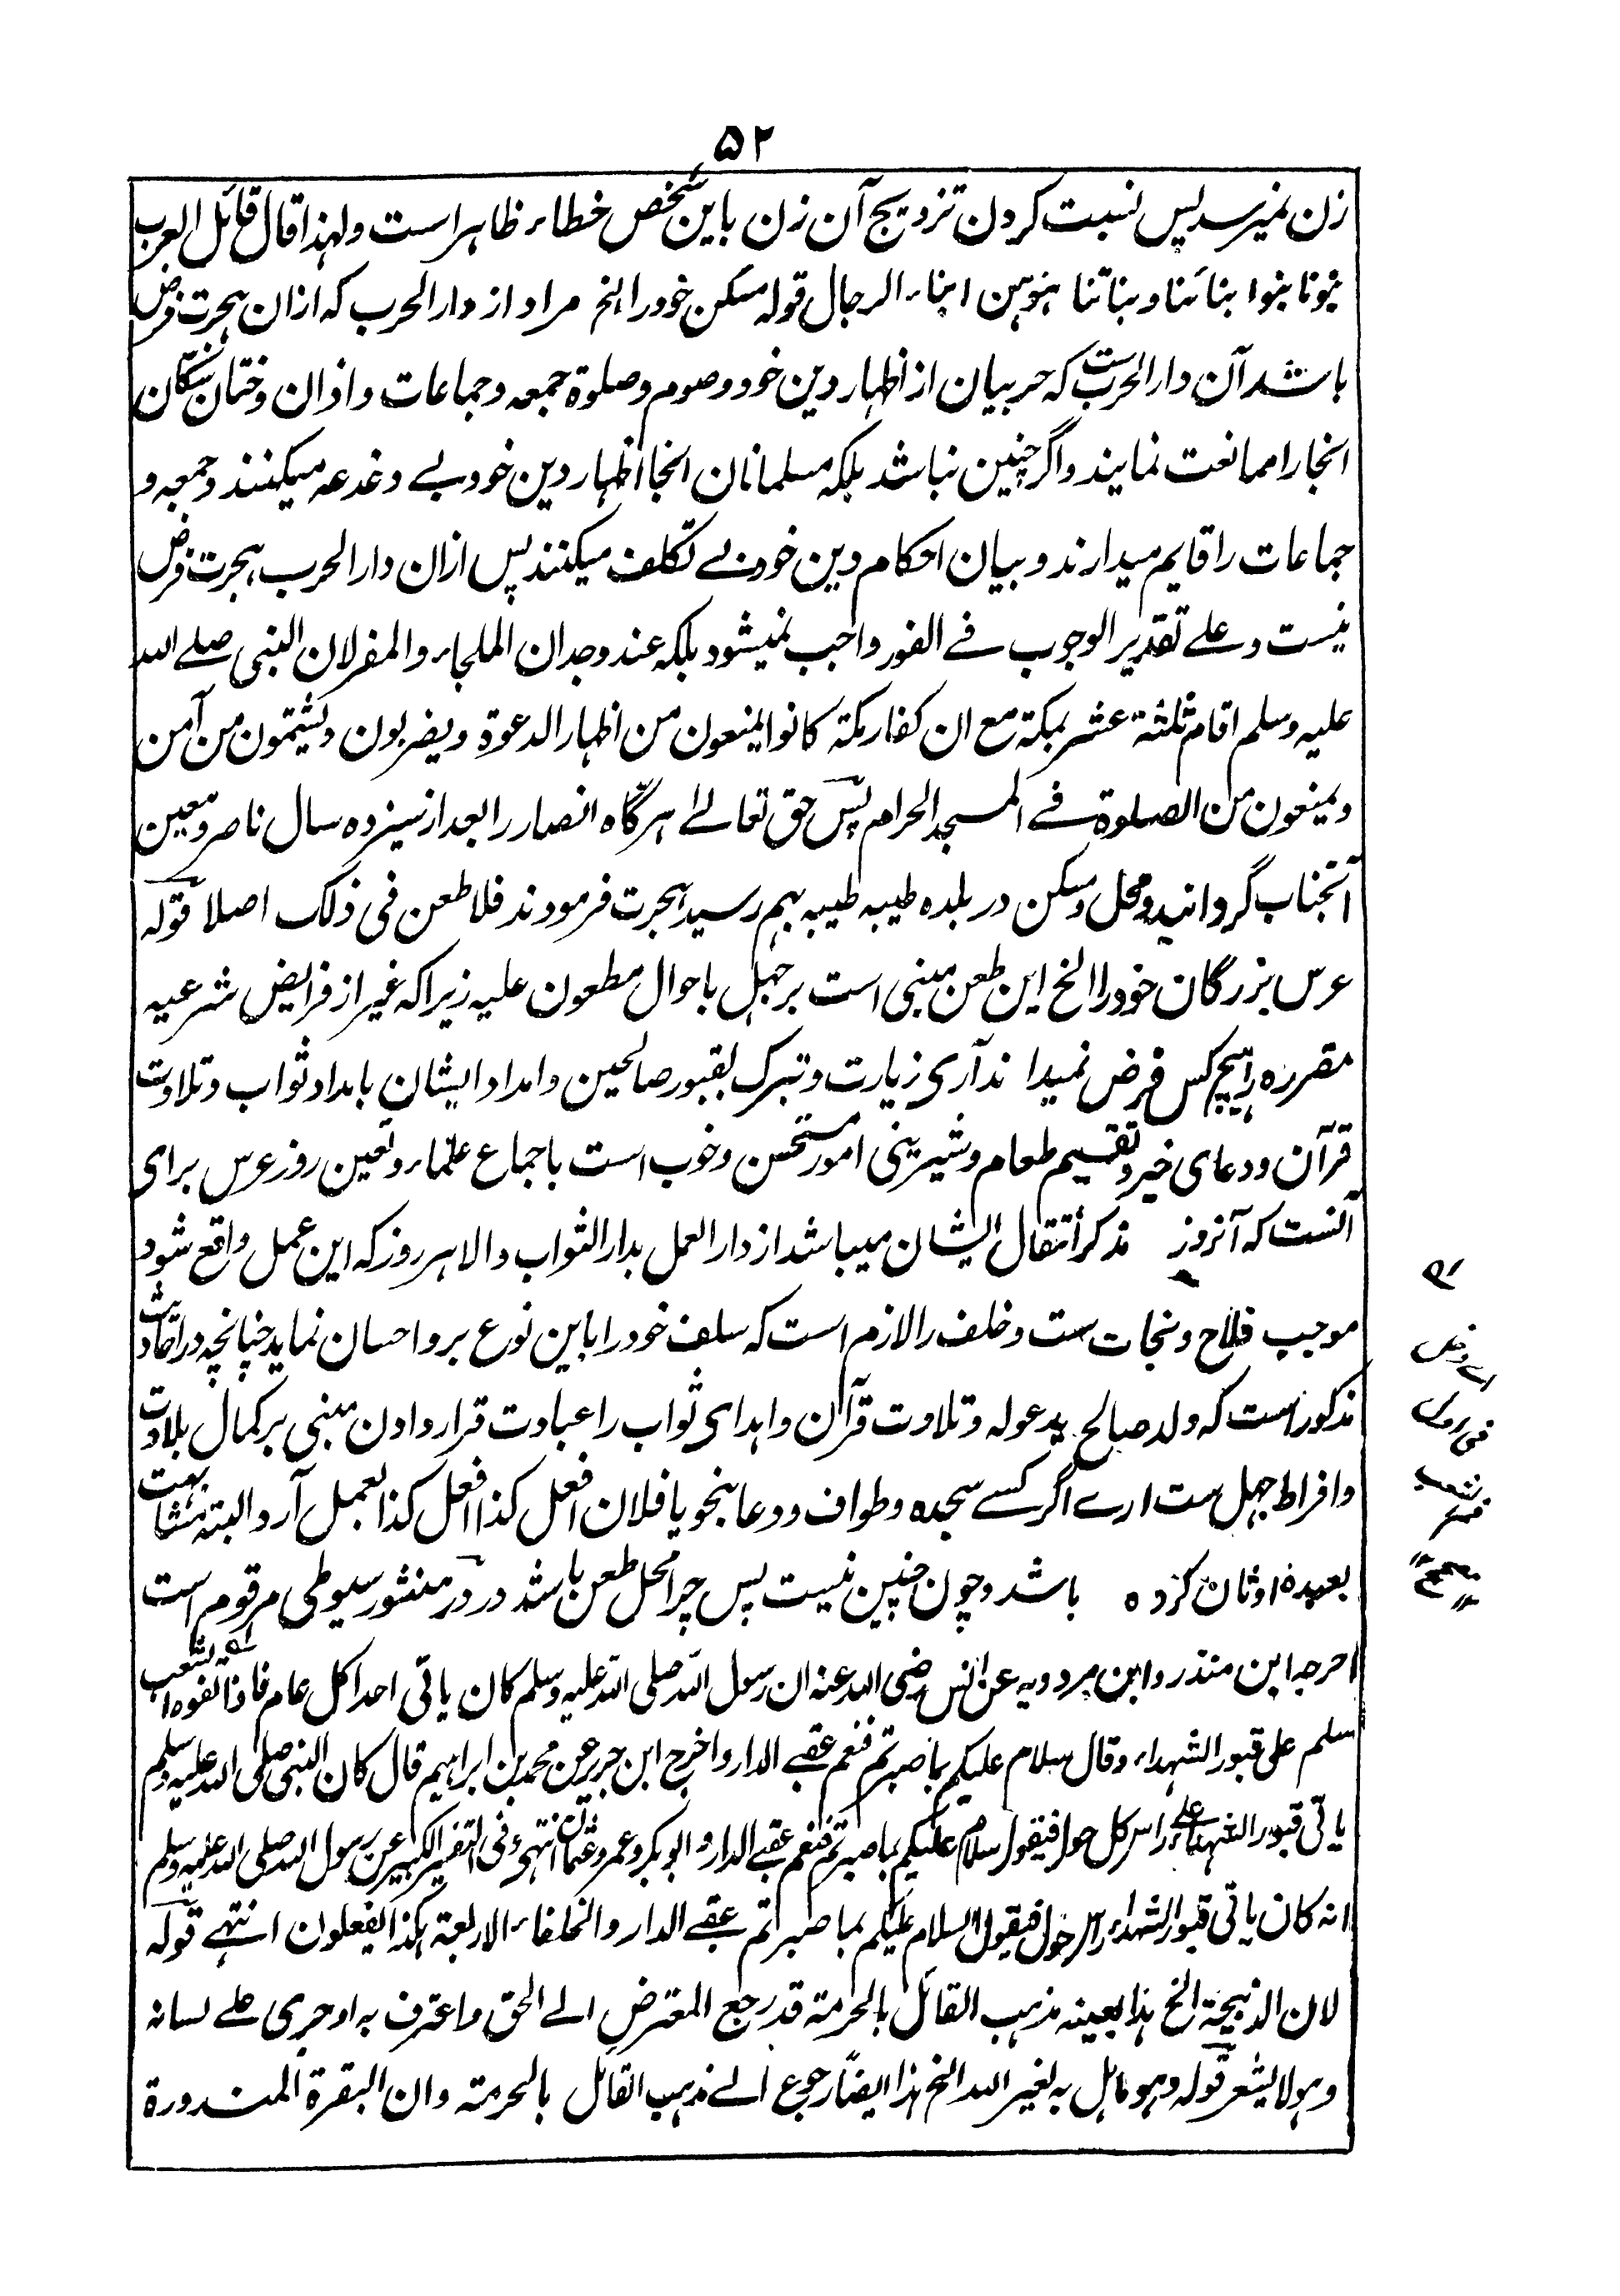 ۵۲
زن نمیرسد پس نسبت کردن تزویج آن زن باین شخص خطاء ظاہر است ولہذا قال قائل العرب
بنونا بنوا بنائنا وبناتنا بنوہن ابناء الرجال قولہ مسکن خود را الخ مراد از دار الحرب کہ ازان ہجرت فرض
باشد آن دار الحرب ست کہ حربیان از اظہار دین خود وصوم وصلوة جمعہ وجماعات واذان وختان سکان
انجا را ممانعت نمایند واگر چنین نباشد بلکہ مسلمانان انجا اظہار دین خود بے دغدغہ میکنند وجمعہ و
جماعات را قایم میدارند وبیان احکام دین خود بے تکلف میکنند پس ازان دار الحرب ہجرت فرض
نیست وعلے تقدیر الوجوب فے الفور واجب نمیشود بلکہ عند وجدان الملجاء والمفر لان النبی صلے اللہ
علیہ وسلم اقام ثلثة عشر بمکة مع ان کفار مکة کانوا یمنعون من اظہار الدعوة ویضربون ویشتمون من آمن
ویمنعون من الصلوة فے المسجد الحرام پس حق تعالےٰ ہرگاہ انصار را بعد از سیزدہ سال ناصر ومعین
آنجناب گردانید ومحل ومسکن در بلدہ طیبہ طیبہ بہم رسید ہجرت فرمودند فلا طعن فی ذلک اصلا قولہ
عرس بزرگان خود را الخ این طعن مبنی است بر جہل باحوال مطعون علیہ زیرا کہ غیر از فرایض شرعیہ
مقررہ را ہیچ کس فرض نمیداند آری زیارت وتبرک بقبور صالحین وامداد ایشان بامداد ثواب وتلاوت
قرآن ودعای خیر وتقسیم طعام وشیرینی امور مستحسن وخوب است باجماع علماء وتعین روز عرس برای
آنست کہ آنروز مذکر انتقال ایشان میباشد از دار العمل بدار الثواب والا ہر روز کہ این عمل واقع شود
موجب فلاح ونجات ست وخلف را لازم است کہ سلف خود را باین نوع بر واحسان نماید چنانچہ در احادیث
مذکور است کہ ولد صالح یدعولہ وتلاوت قرآن واہدای ثواب را عبادت قرار دادن مبنی بر کمال بلادت
وافراط جہل ست ارے اگر کسے سجدہ وطواف ودعا بنحو یا فلان افعل کذا افعل کذا بعمل آرد البتہ مشابہت
بعبدہ اوثان کردہ باشد وچون چنین نیست پس چرا محل طعن باشد در در منثور سیوطی مرقوم است
اخرجہ ابن منذر وابن مردویہ عن انس رضی اللہ عنہ ان رسول اللہ صلی اللہ علیہ وسلم کان یاتی احدا کل عام فاذا تفوہ الشعب
سلم علی قبور الشہداء وقال سلام علیکم بما صبرتم فنعم عقبے الدار واخرج ابن جریر عن محمد بن ابراہیم قال کان النبی صلی اللہ علیہ وسلم
یاتی قبور الشہداء علے راس کل حول فیقول سلام علیکم بما صبرتم فنعم عقبے الدار وابو بکر وعمر وعثمان انتہی وفی التفسیر الکبیر عن رسول اللہ صلی اللہ علیہ وسلم
انہ کان یاتی قبور الشہداء راس حول فیقول السلام علیکم بما صبرتم عقبے الدار والخلفاء الاربعة ہکذا یفعلون انتہے قولہ
لان الذبیحة الخ ہذا بعینہ مذہب القائل بالحرمة قد رجع المعترض الے الحق واعترف بہ او جری علے لسانہ
وہو لا یشعر قولہ وہو ما اہل بہ لغیر اللہ الخ ہذا ایضًا رجوع الے مذہب القائل بالحرمة وان البقرة المنذورة
اے دخل
فی
شعب